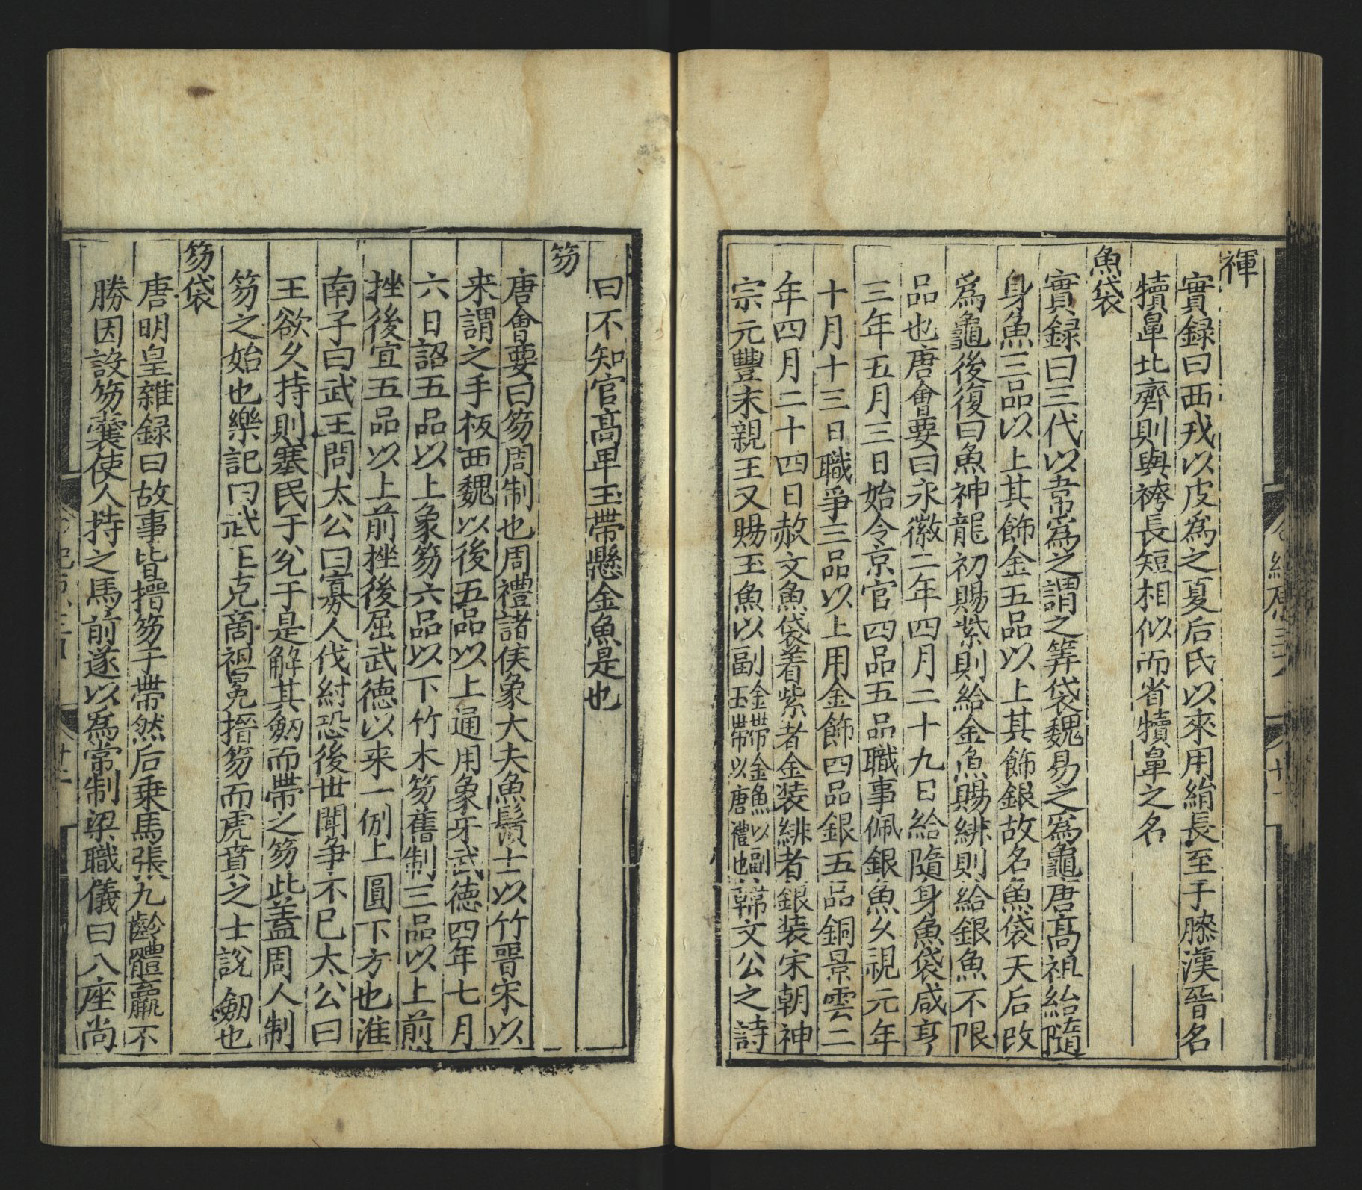 褌
實録曰西戎以皮爲之夏后氏以來用絹長至于膝漢晉名
犢鼻北齊則與袴長短相似而省犢鼻之名
魚袋
實録曰三代以韋爲之謂之筭袋魏易之爲龜唐髙祖給隨
身魚三品以上其飾金五品以上其飾銀故名魚袋天后改
爲龜後復曰魚神龍初賜紫則給金魚賜緋則給銀魚不限
品也唐會要曰永徽二年四月二十九日給隨身魚袋咸亨
三年五月三日始令京官四品五品職事佩銀魚久視元年
十月十三日職事三品以上用金飾四品銀五品銅景雲二
年四月二十四日赦文魚袋着紫者金装緋者銀装宋朝神
宗元豐末親王又賜玉魚以副金帶金魚以副玉帶以唐禮也韓文公之詩
曰不知官髙卑玉帶懸金魚是也
笏
唐會要曰笏周制也周禮諸侯象大夫魚鬚士以竹晉宋以
来謂之手板西魏以後五品以上通用象牙武德四年七月
六日詔五品以上象笏六品以下竹木笏舊制三品以上前
挫後宜五品以上前挫後屈武德以来一例上圓下方也淮
南子曰武王問太公曰寡人伐紂恐後世聞爭不已太公曰
王欲久持則塞民于兊于是解其劒而帶之笏此盖周人制
笏之始也樂記曰武王克啇裨冕搢笏而虎賁之士說劒也
笏袋
唐明皇雜録曰故事皆搢笏于帶然后乗馬張九齡體羸不
勝因設笏囊使人持之馬前遂以爲常制梁職儀曰八座尚